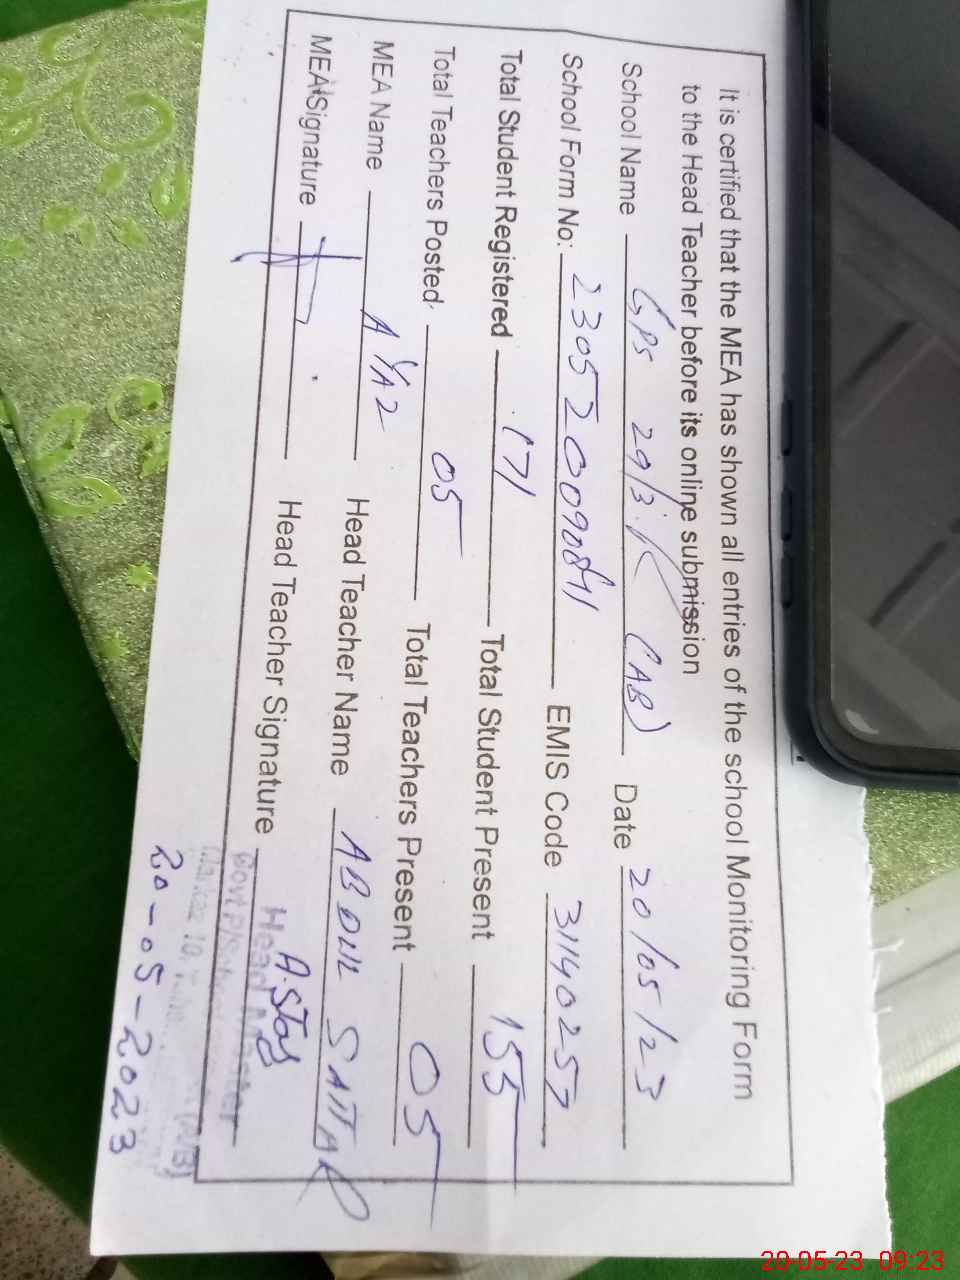 It is certified that the MEA has shown all entries of the school Monitoring Form
to the Head Teacher before its online submission
School Name GPS 29/3.R (AB) Date 20/05/23
School Form No: EMIS Code 31140257
Total Student Registered 171 Total Student Present 155
Total Teachers Posted 05 Total Teachers Present 05
MEA Name AYAZ Head Teacher Name ABDUL SATTAR
MEA Signature Head Teacher Signature
Head Master
Govt P/S
20-05-2023
20-05-23 09:23